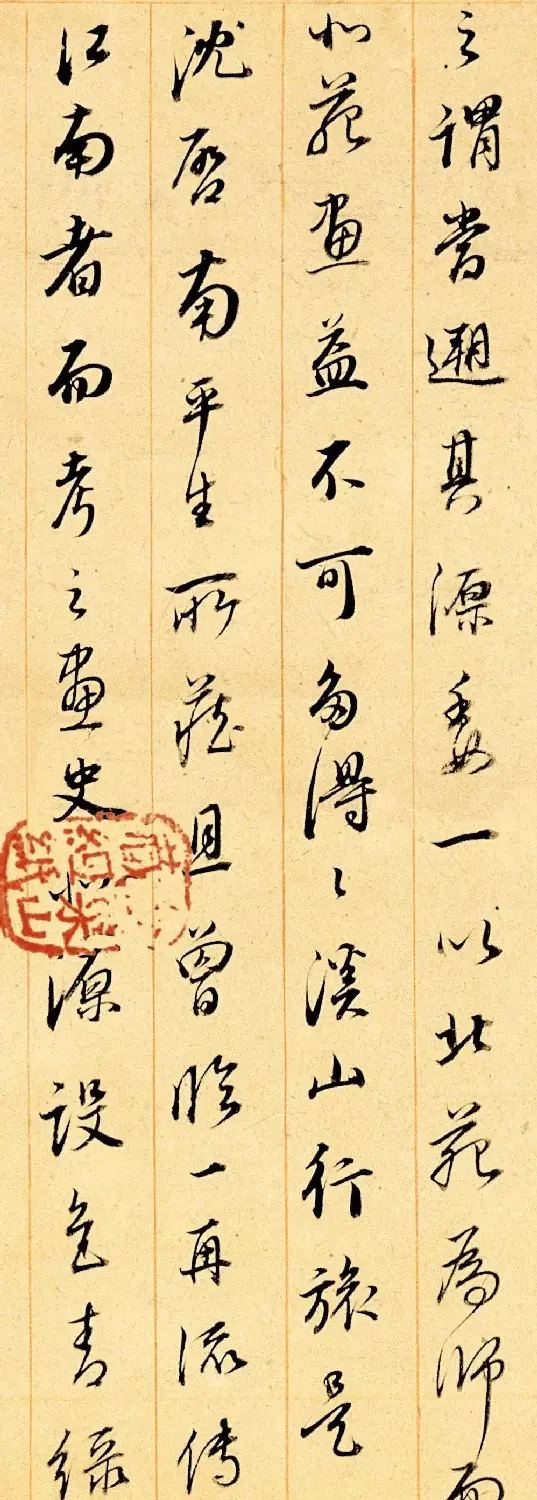 之谓嘗遡其源委一以北苑為師而
北苑画益不可多得得溪山行旅是
沈啓南平生所藏且曾臨一再流传
江南者而考之畫史北源設色青綠